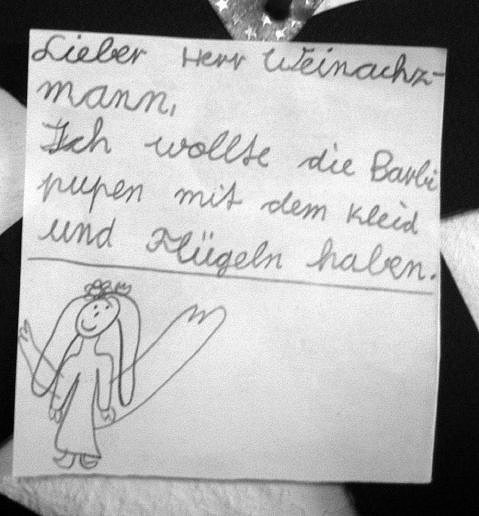 Lieber Herr Weinachz-
mann,
Ich wollte die Barbi
pupen mit dem Kleid
und Flügeln haben.